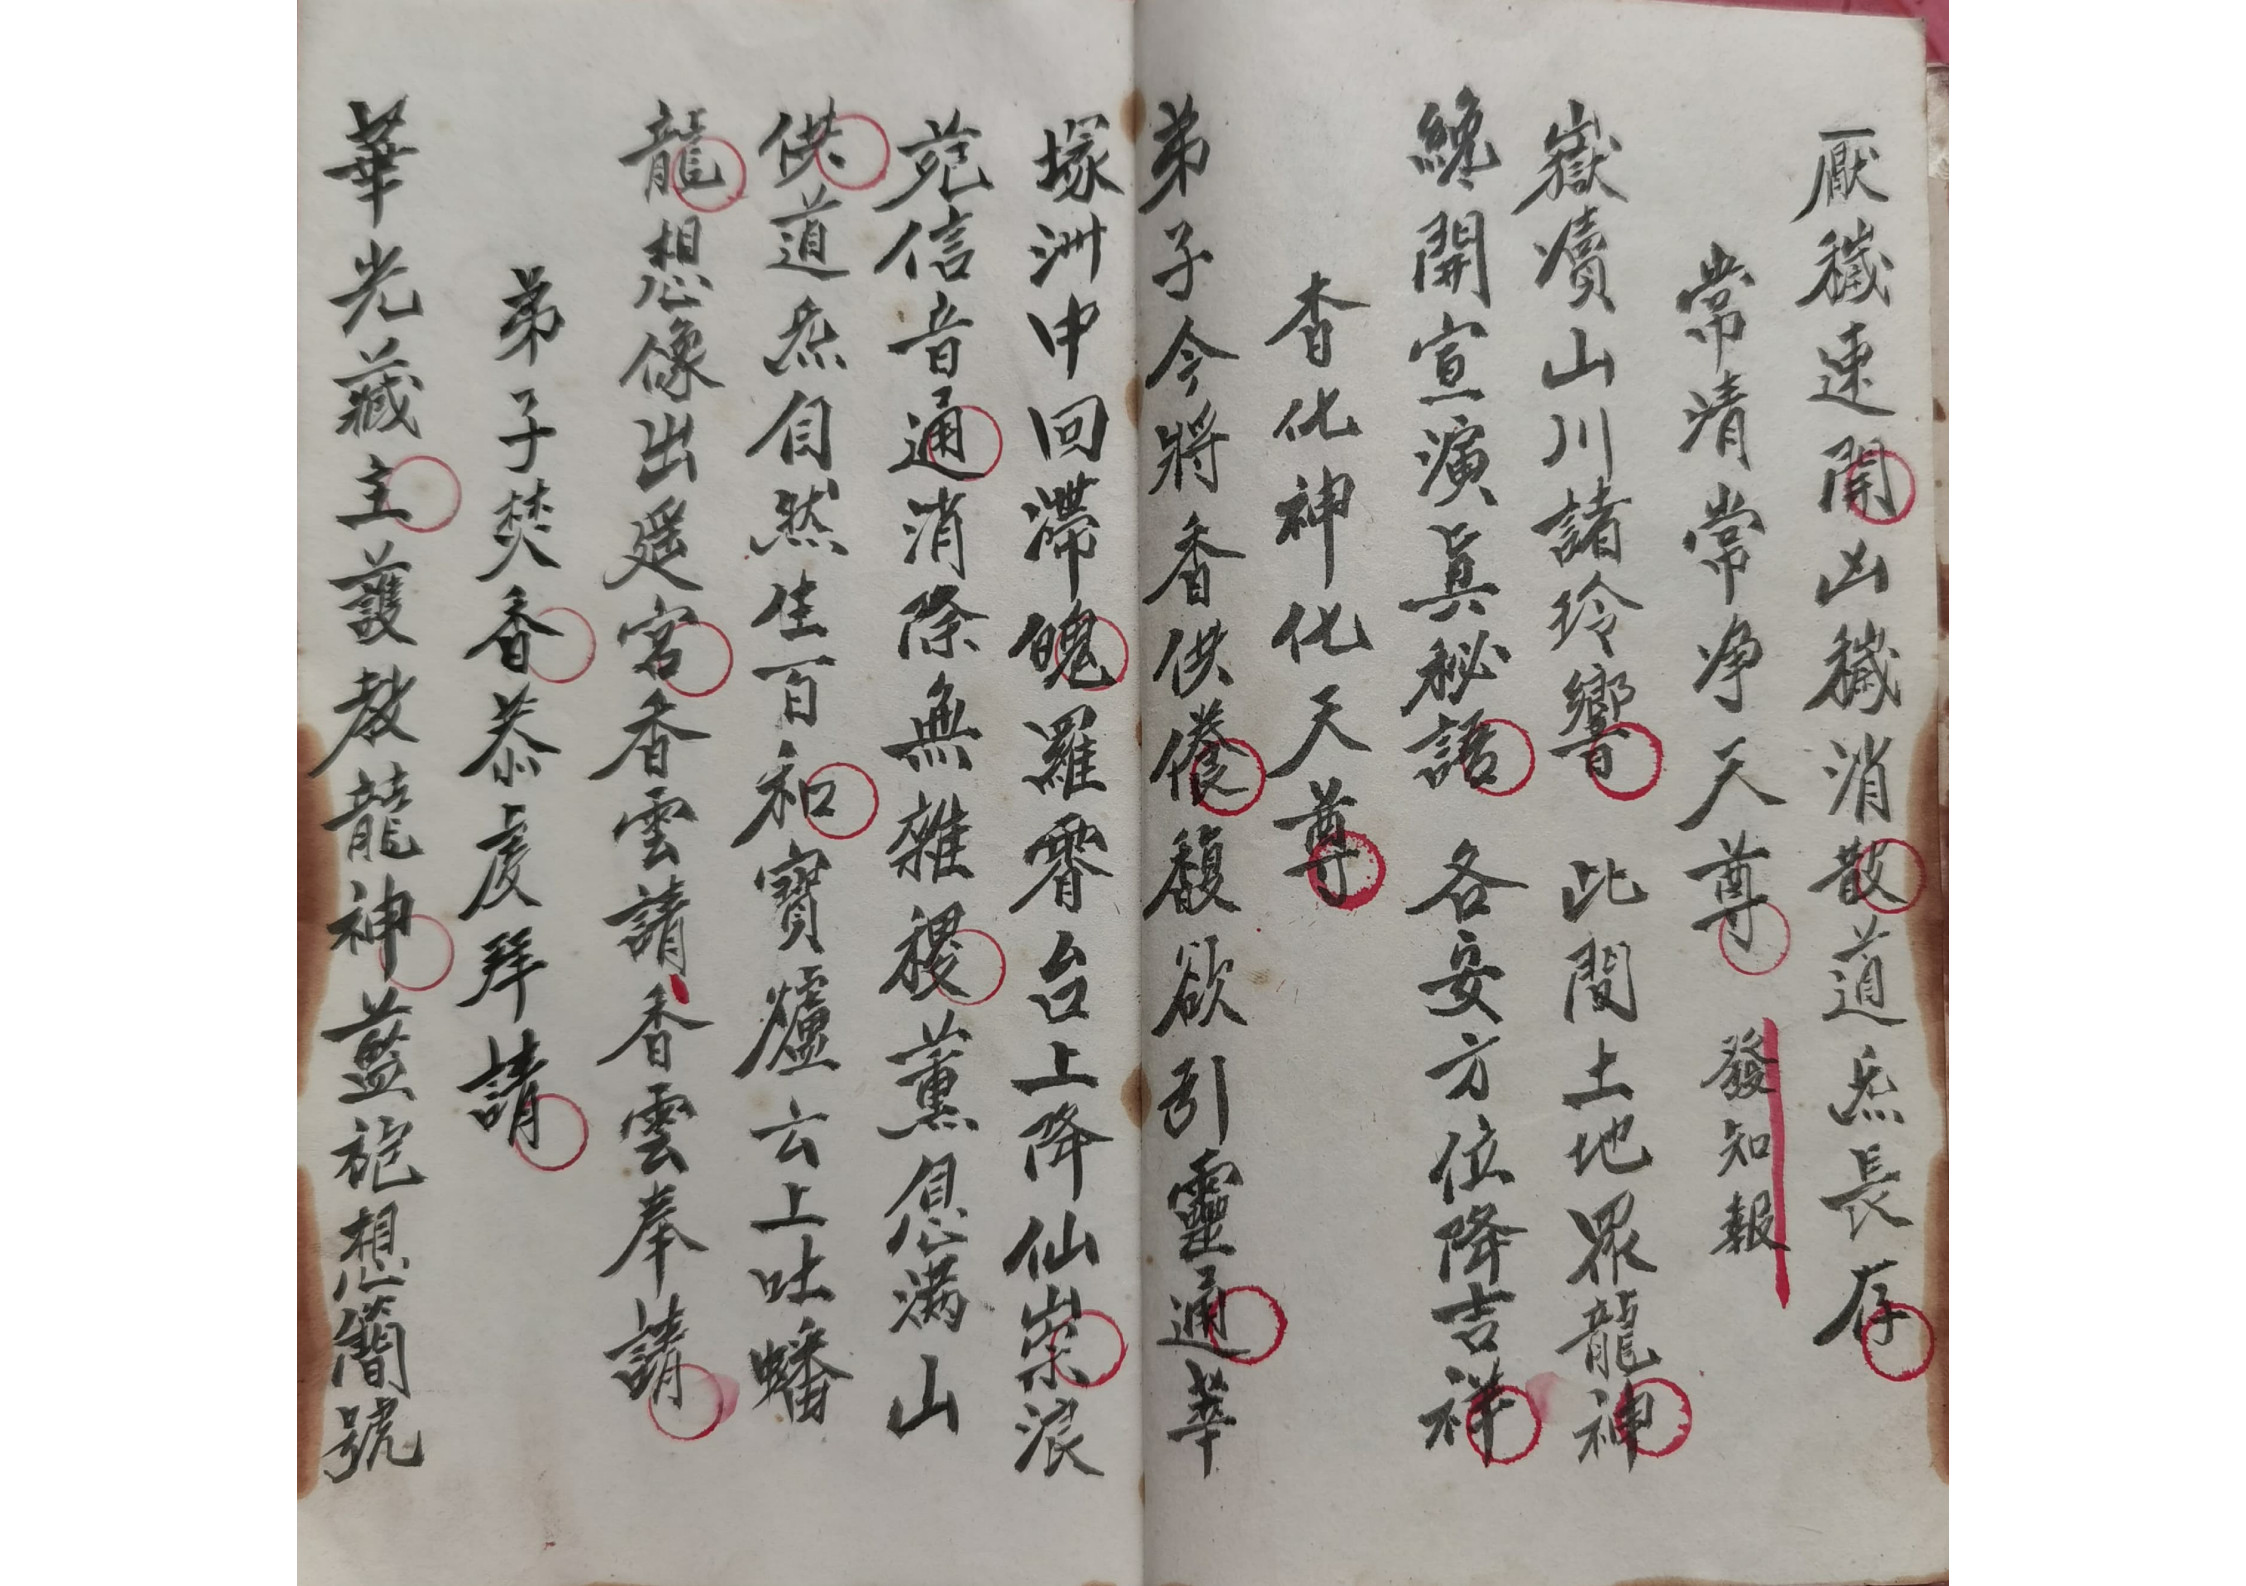 厭穢速開凶穢消散道炁長存
常清常常净天尊 發知報
嶽瀆山川諸玲響 此間土地眾龍神
纔開宣演眞秘語 各安方位降吉祥
杳化神化天尊
弟子今將香供養馥欲引靈通華
塚洲申回滯魄羅霄台上降仙崇浪
苑信音通消除無雜穢薰息满山
供道炁自然生百和寳爐云上吐蟠
龍想像出遥宮香雲請香雲奉請
弟子焚香恭虔拜請
華光藏主護教龍神藍袍想簡號